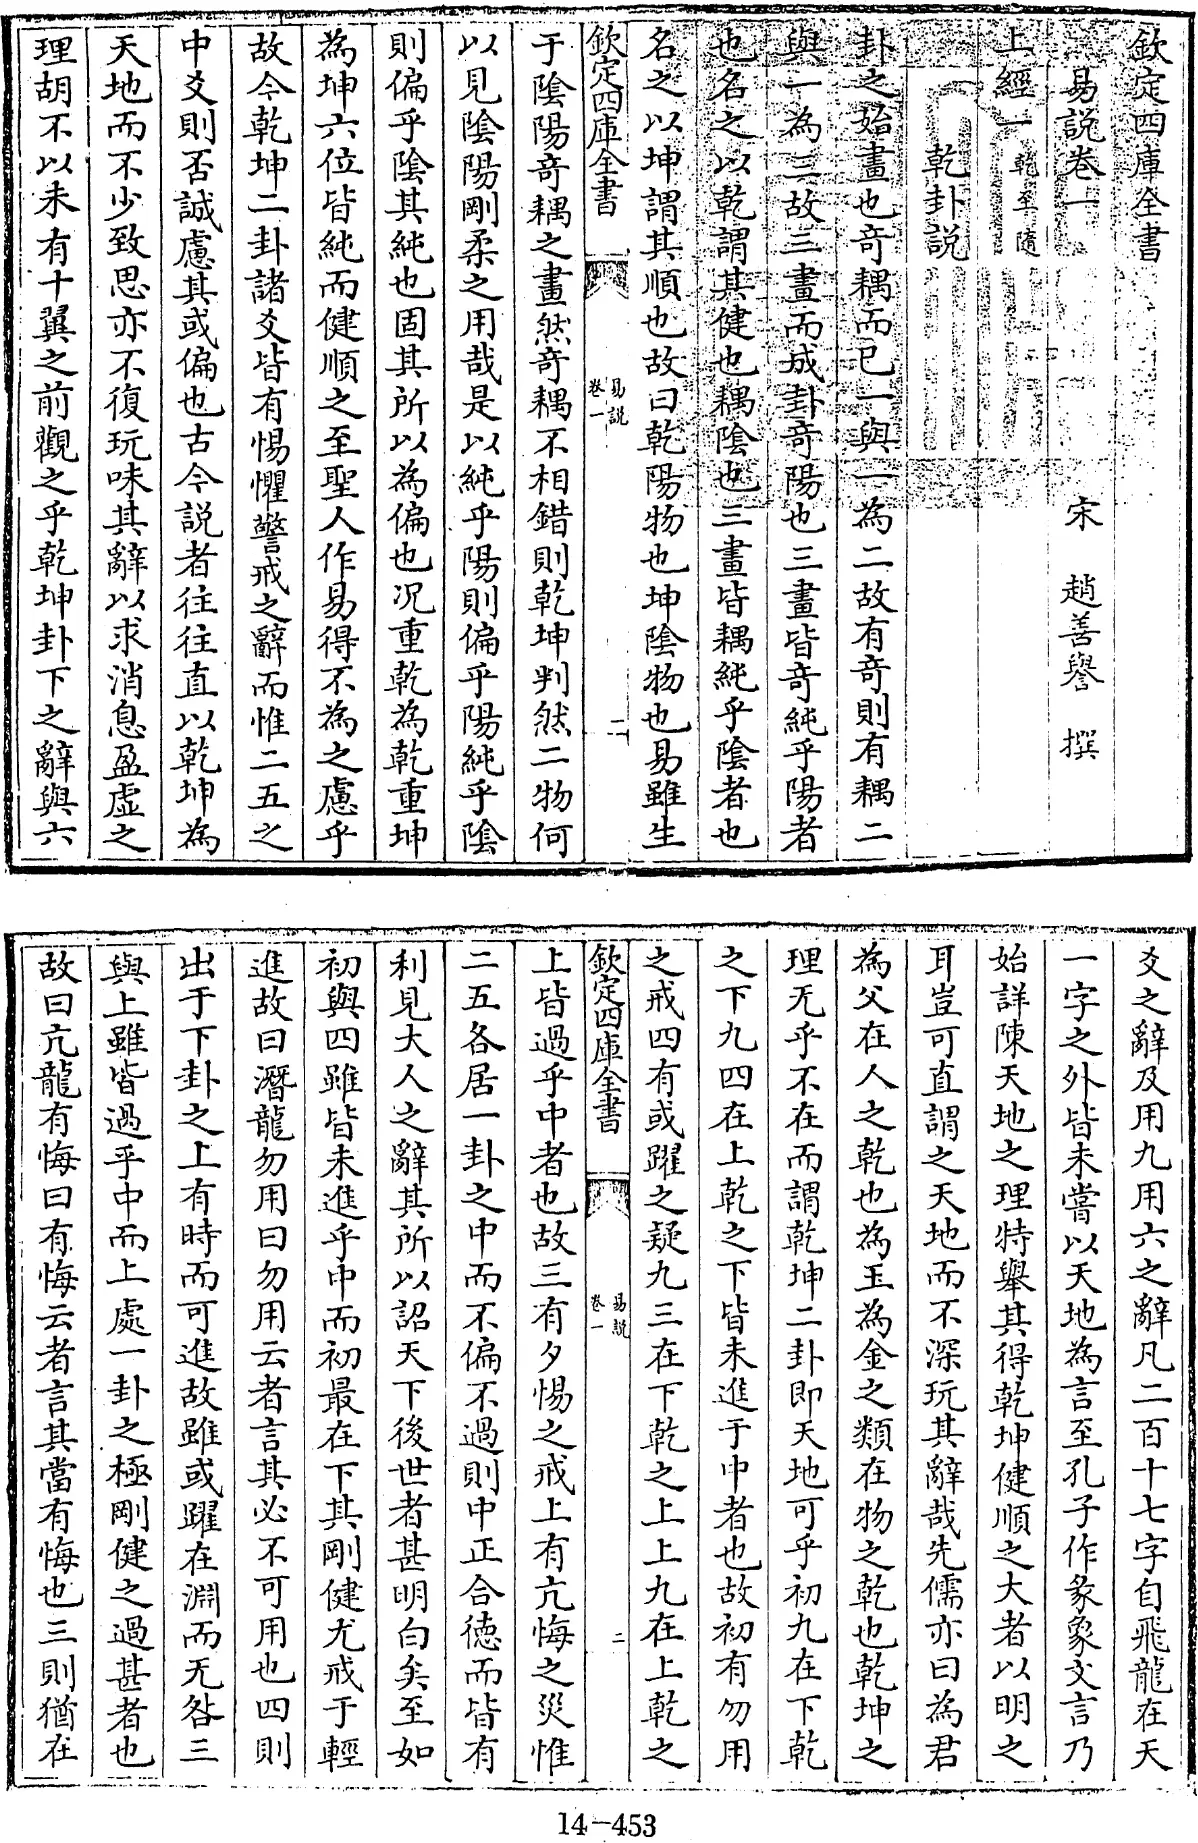 欽定四庫全書
易説卷一
宋 趙善譽 撰
上經一 乾至隨
乾卦説
卦之始畫也奇耦而已一與一為二故有奇則有耦二
與一為三故三畫而成卦奇陽也三畫皆奇純乎陽者
也名之以乾謂其健也耦陰也三畫皆耦純乎陰者也
名之以坤謂其順也故曰乾陽物也坤陰物也易雖生
欽定四庫全書
易説
卷一
于陰陽奇耦之畫然奇耦不相錯則乾坤判然二物何
以見陰陽剛柔之用哉是以純乎陽則偏乎陽純乎陰
則偏乎陰其純也固其所以為偏也况重乾為乾重坤
為坤六位皆純而健順之至聖人作易得不為之慮乎
故今乾坤二卦諸爻皆有惕懼警戒之辭而惟二五之
中爻則否誠慮其或偏也古今説者往往直以乾坤為
天地而不少致思亦不復玩味其辭以求消息盈虛之
理胡不以未有十翼之前觀之乎乾坤卦下之辭與六
爻之辭及用九用六之辭凡二百十七字自飛龍在天
一字之外皆未嘗以天地為言至孔子作彖象文言乃
始詳陳天地之理特舉其得乾坤健順之大者以明之
耳豈可直謂之天地而不深玩其辭哉先儒亦曰為君
為父在人之乾也為玉為金之類在物之乾也乾坤之
理无乎不在而謂乾坤二卦即天地可乎初九在下乾
之下九四在上乾之下皆未進于中者也故初有勿用
之戒四有或躍之疑九三在下乾之上上九在上乾之
欽定四庫全書
易説
卷一
二
上皆過乎中者也故三有夕惕之戒上有亢悔之災惟
二五各居一卦之中而不偏不過則中正合德而皆有
利見大人之辭其所以詔天下後世者甚明白矣至如
初與四雖皆未進乎中而初最在下其剛健尤戒于輕
進故曰潛龍勿用曰勿用云者言其必不可用也四則
出于下卦之上有時而可進故雖或躍在淵而无咎三
與上雖皆過乎中而上處一卦之極剛健之過甚者也
故曰亢龍有悔曰有悔云者言其當有悔也三則猶在
14-453